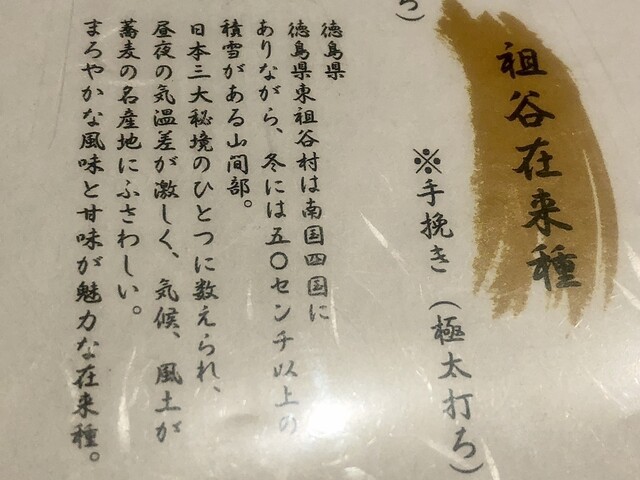 ち)
祖谷在来種
※手挽き(極太打ち)
徳島県
徳島県東祖谷村は南国四国に
ありながら、冬には五〇センチ以上の
積雪がある山間部。
日本三大秘境のひとつに数えられ、
昼夜の気温差が激しく、気候、風土が
蕎麦の名産地にふさわしい。
まろやかな風味と甘味が魅力な在来種。